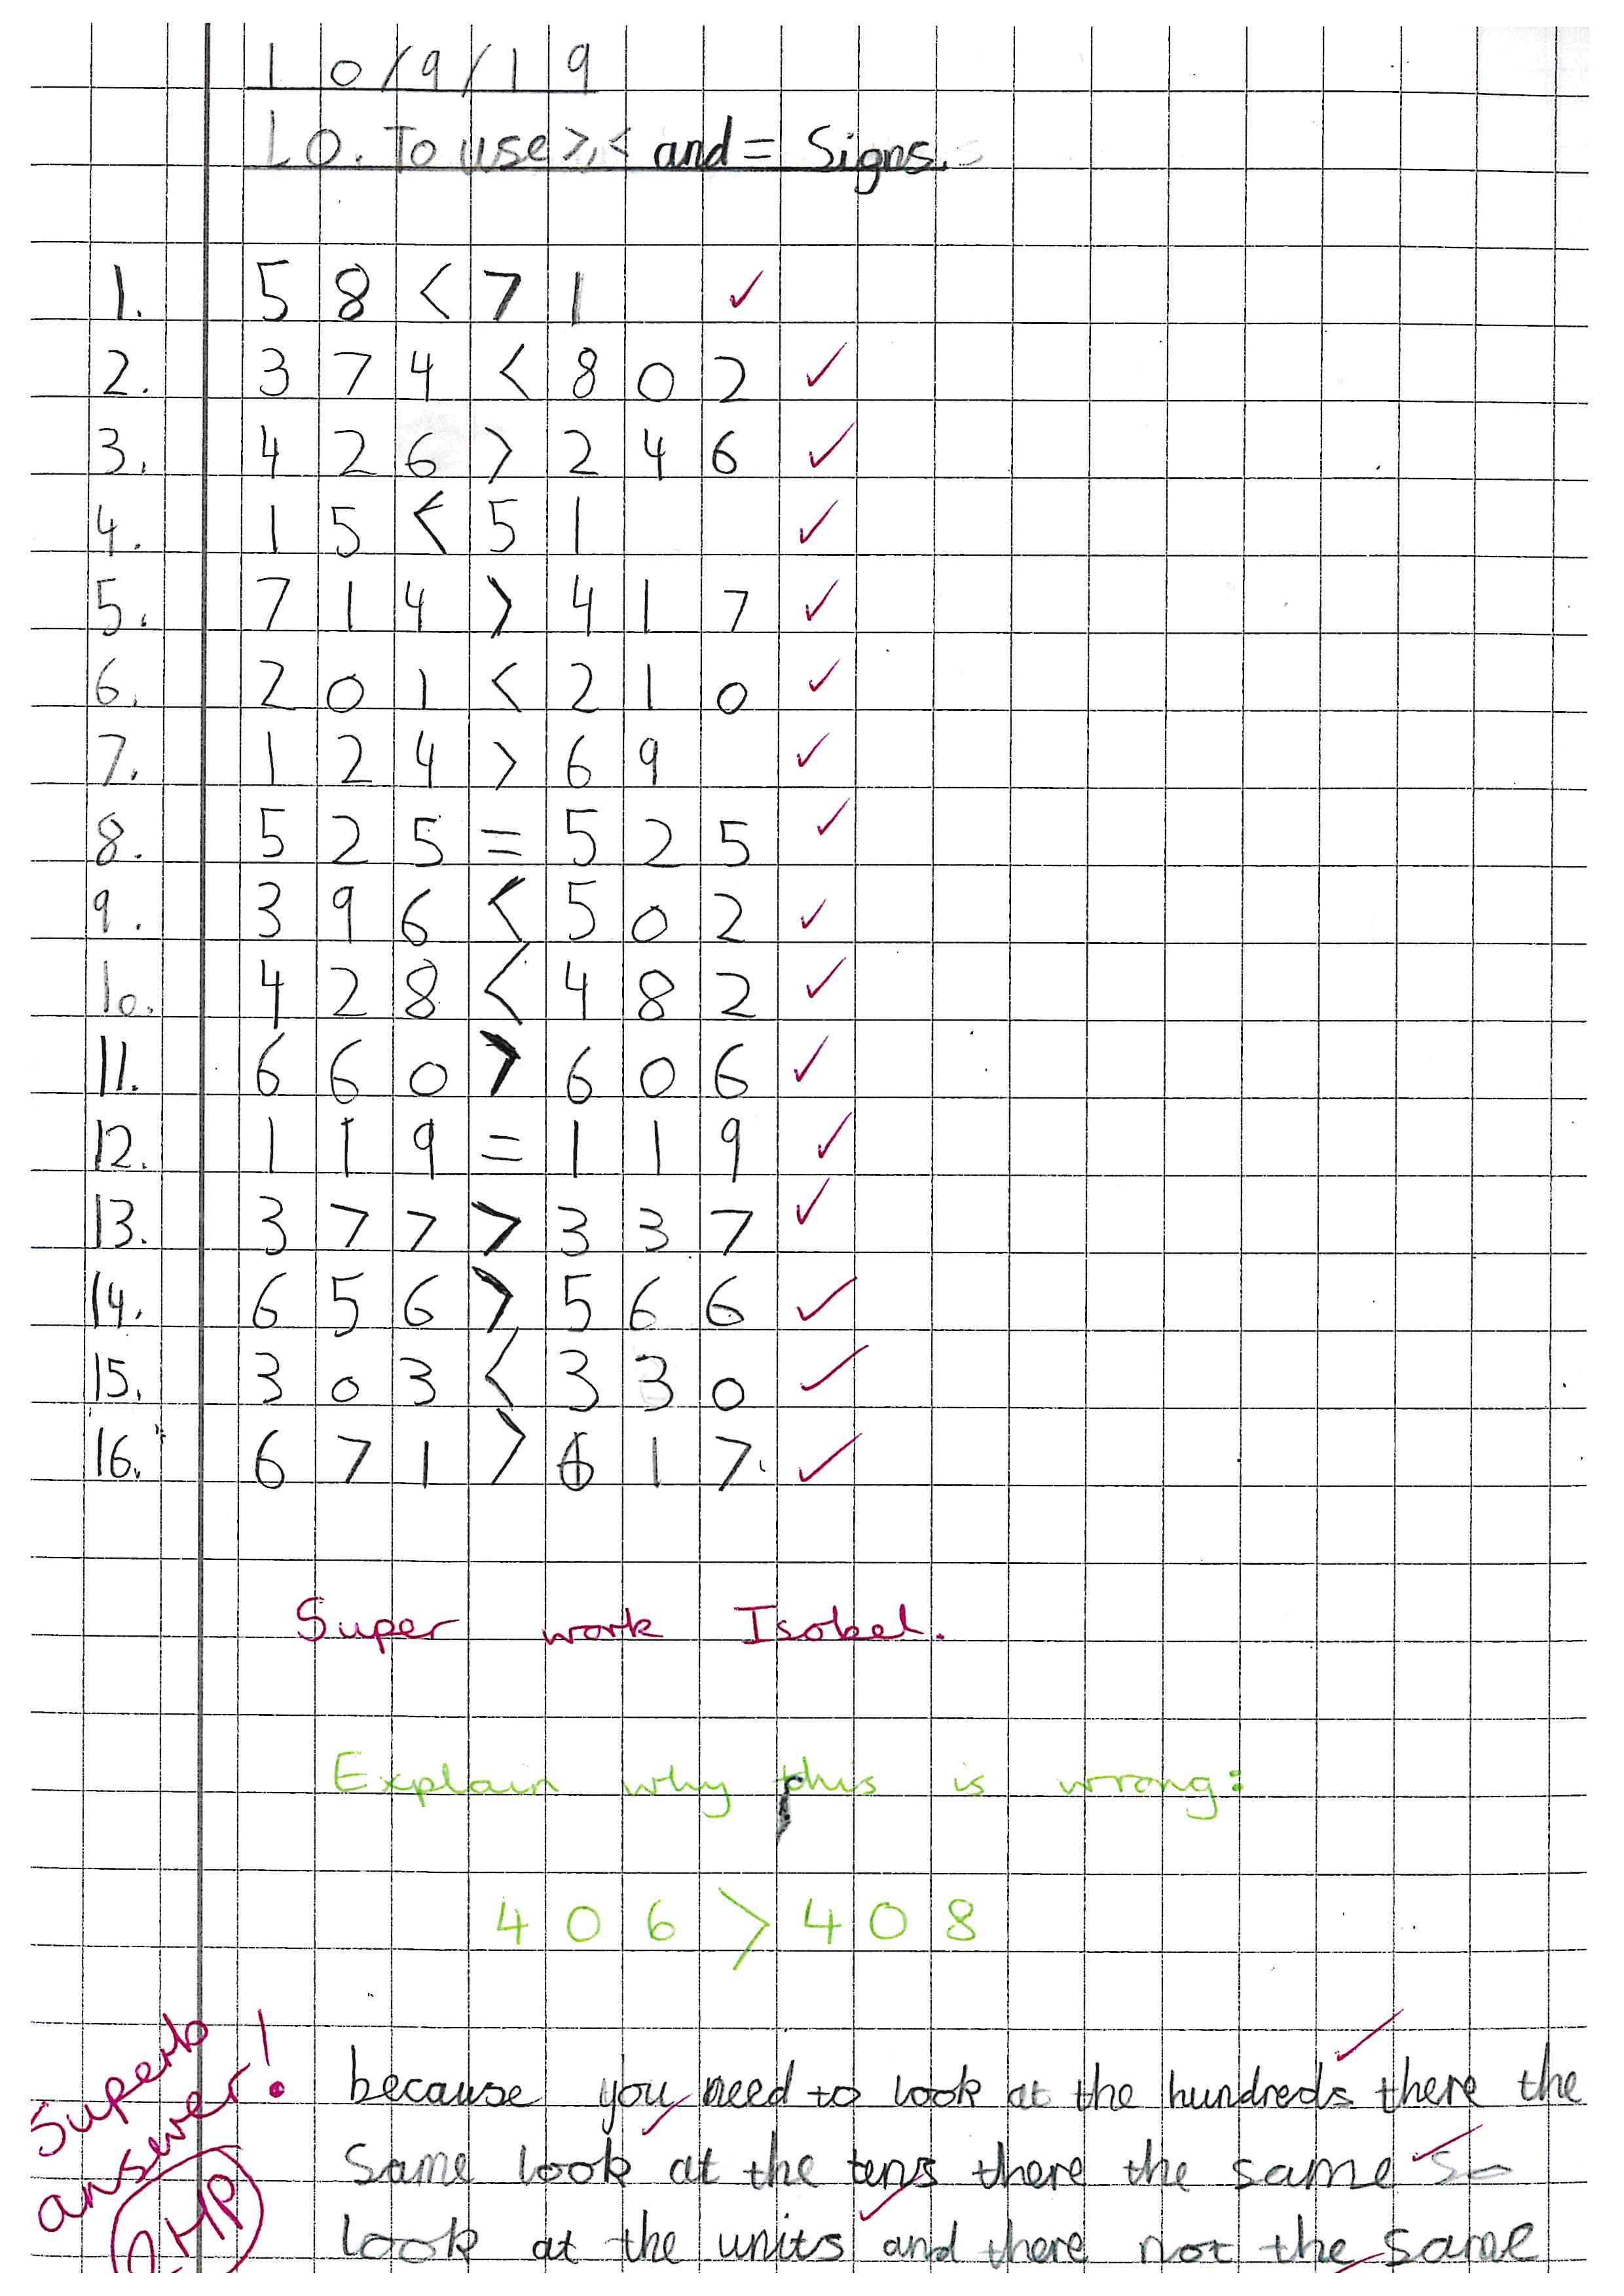 10/9/19
LO. To use >, < and = Signs.
1. 58 < 71 ✓
2. 374 < 802 ✓
3. 426 > 246 ✓
4. 15 < 51 ✓
5. 714 > 417 ✓
6. 201 < 210 ✓
7. 124 > 69 ✓
8. 525 = 525 ✓
9. 396 < 502 ✓
10. 428 < 482 ✓
11. 660 > 606 ✓
12. 119 = 119 ✓
13. 377 > 337 ✓
14. 656 > 566 ✓
15. 303 < 330 ✓
16. 671 > 617 ✓
Super work Isobel.
Explain why this is wrong:
406 > 408
Superb
answer!
HP
because you need to look at the hundreds there the
same look at the tens there the same so
look at the units and there not the same